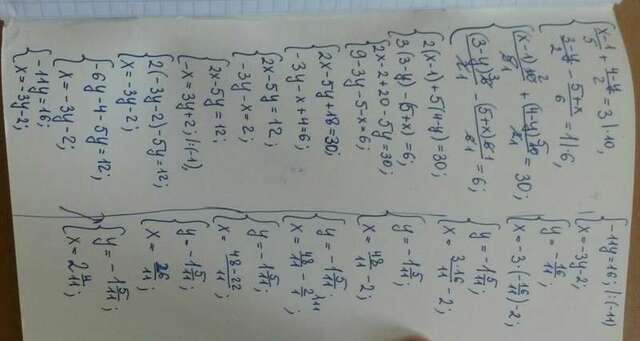 { (x-1)/5 + (4-y)/2 = 3 |·10,
{ (3-y)/2 - (5+x)/6 = 1 |·6,
{ (x-1)10/5 + (4-y)10/2 = 30;
{ (3-y)6/2 - (5+x)6/6 = 6;
{ 2(x-1)+5(4-y)=30;
{ 3(3-y)-(5+x)=6;
{ 2x-2+20-5y=30;
{ 9-3y-5-x=6;
{ 2x-5y+18=30;
{ -3y-x+4=6;
{ 2x-5y=12;
{ -3y-x=2;
{ 2x-5y=12;
{ -x=3y+2; |:(-1)
{ 2(-3y-2)-5y=12;
{ x=-3y-2;
{ -6y-4-5y=12;
{ x=-3y-2;
{ -11y=16;
{ x=-3y-2;
{ -11y=16; |:(-11)
{ x=-3y-2;
{ y=-16/11;
{ x=-3·(-16/11)-2;
{ y=-1 5/11;
{ x=3·16/11-2;
{ y=-1 5/11;
{ x=48/11-2;
{ y=-1 5/11;
{ x=48/11-2/1;
{ y=-1 5/11;
{ x=(48-22)/11;
{ y=-1 5/11;
{ x=26/11;
{ y=-1 5/11;
{ x=2 4/11;